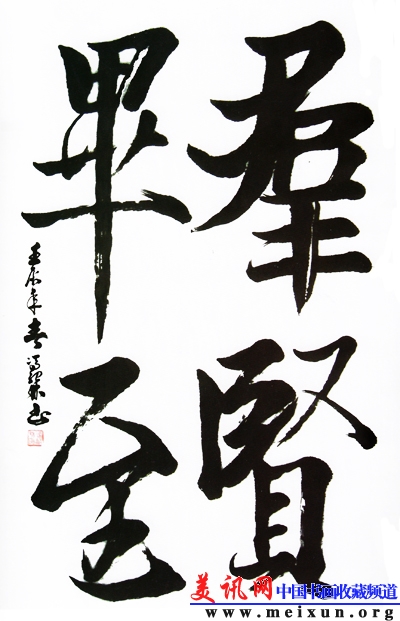 羣賢
畢至
美讯网 中国书画收藏频道
www.meixun.org